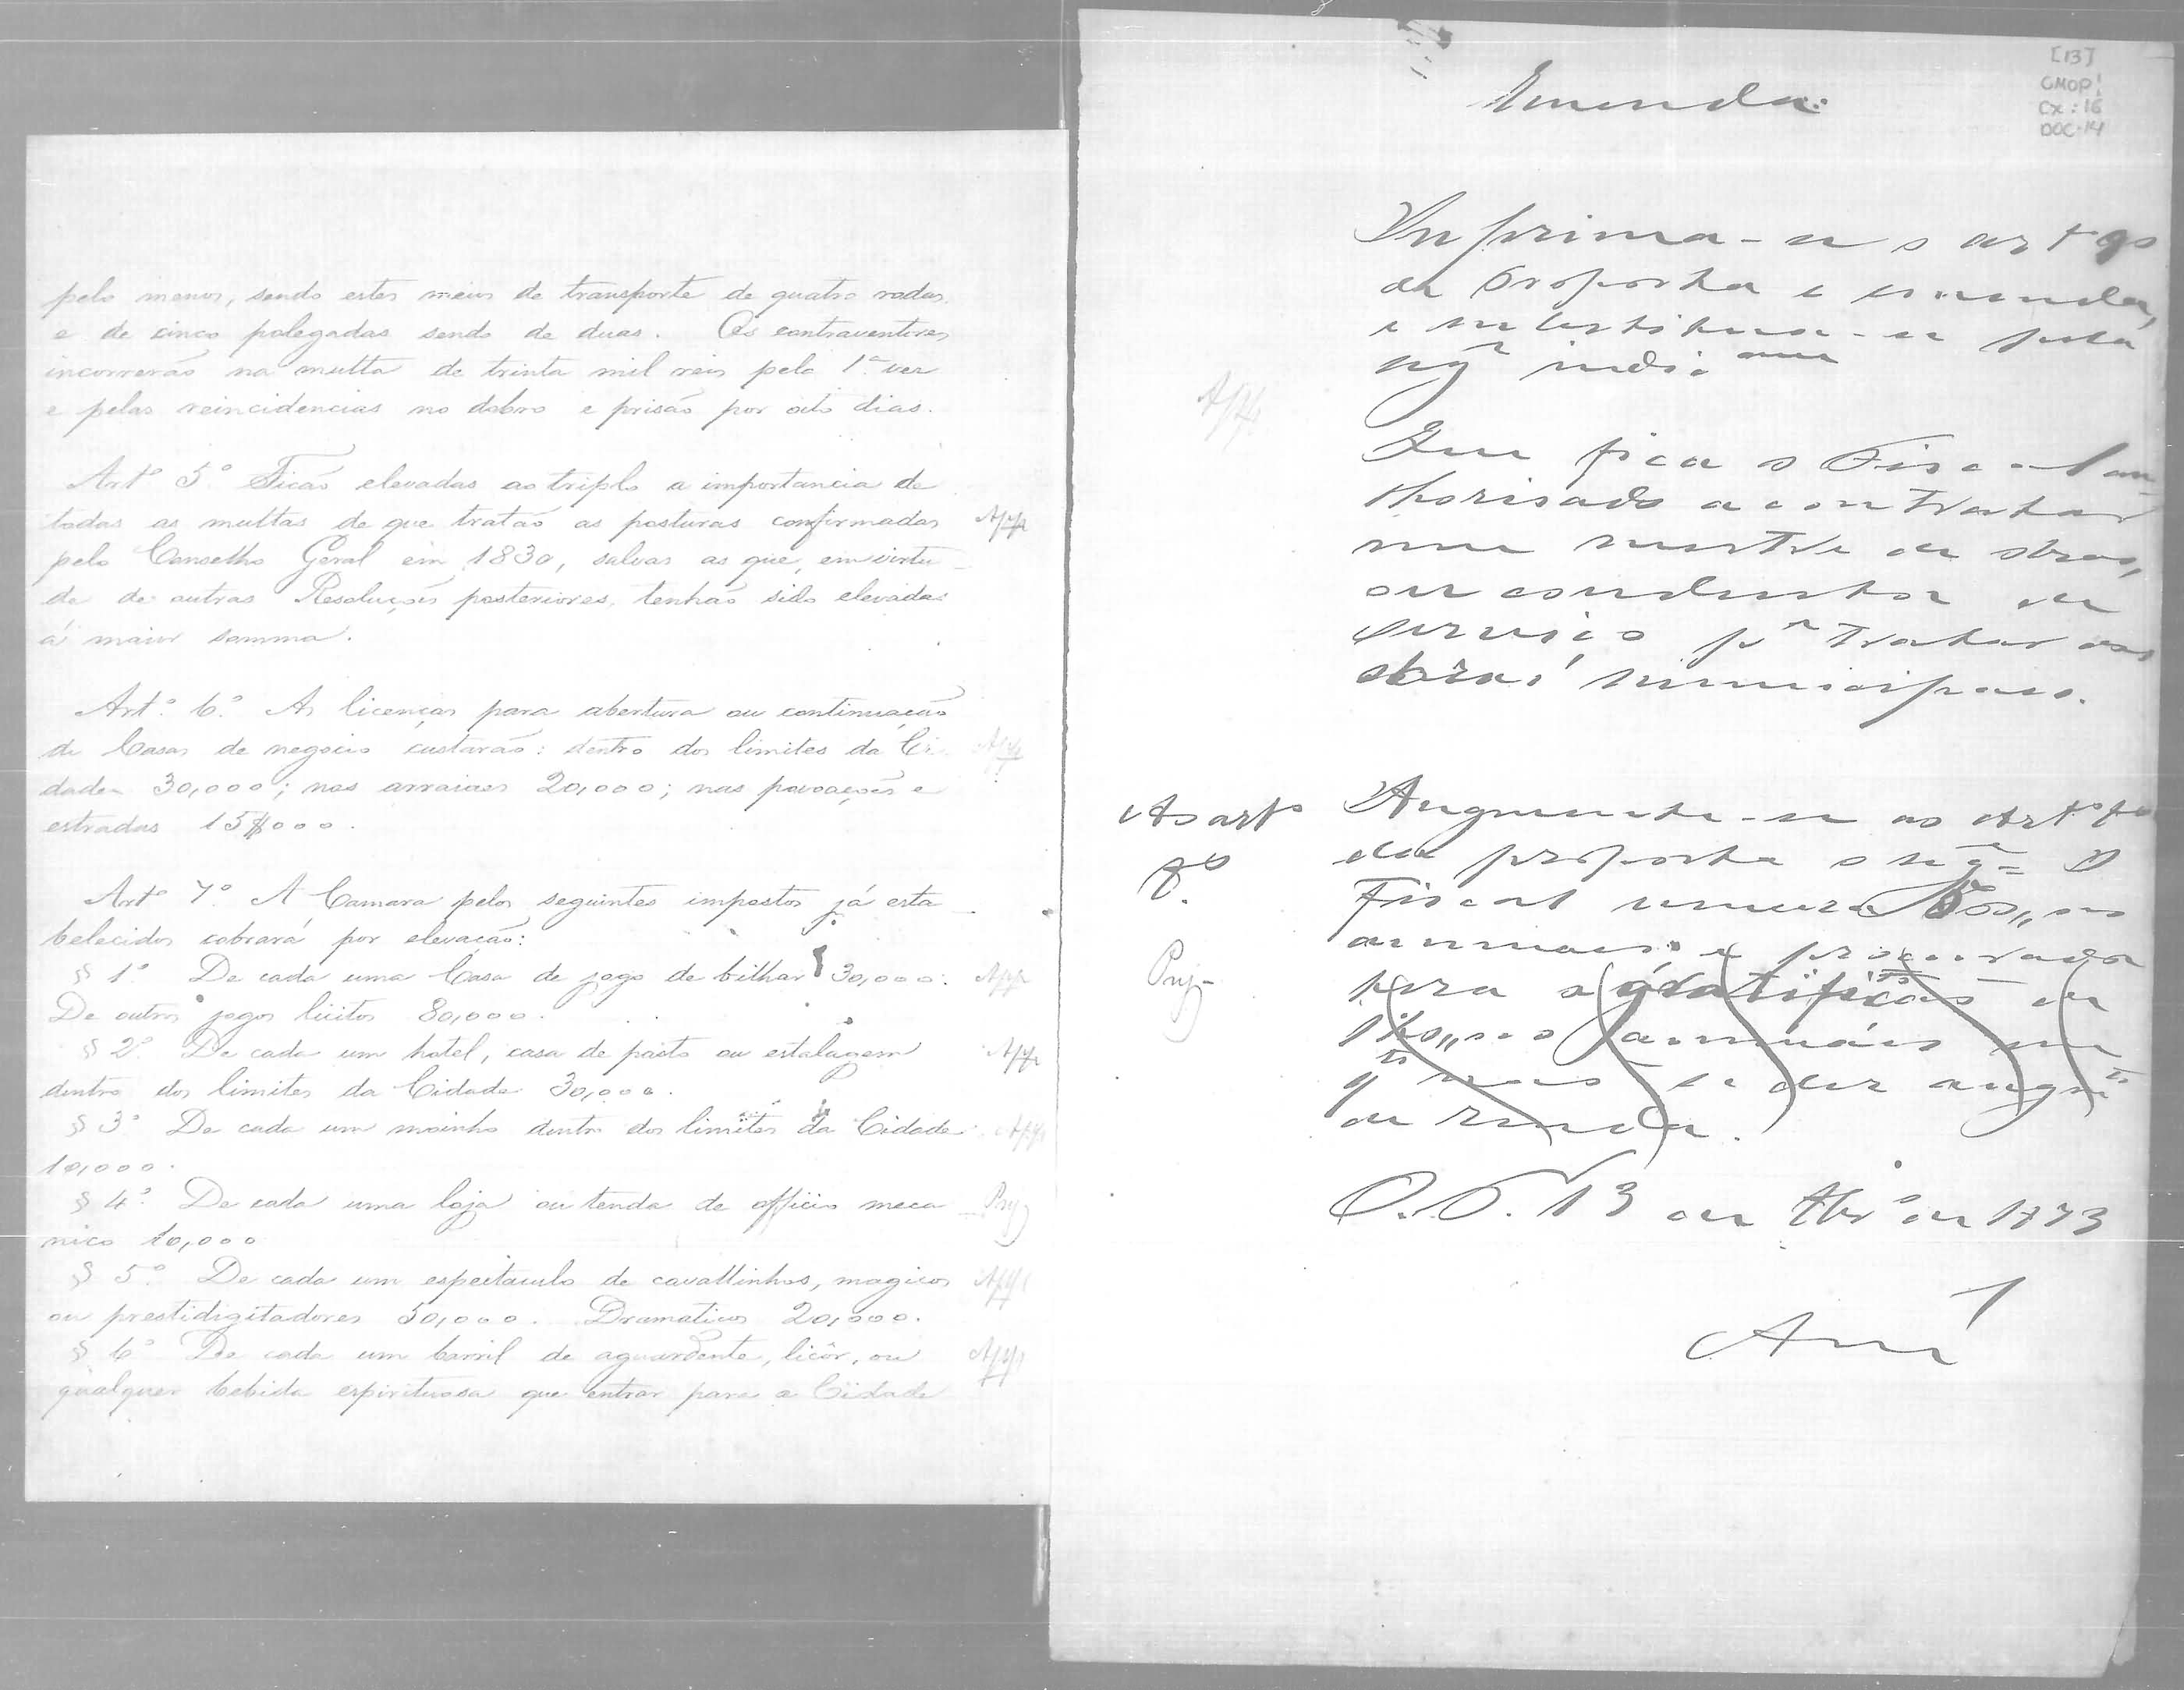 pelo menos, sendo estes meios de transporte de quatro rodas,
e de cinco polegadas sendo de duas. Os contraventores
incorrerão na multa de trinta mil reis pela 1ª vez
e pelas reincidencias no dobro e prisão por oito dias.
Artº 5º Ficão elevadas ao triplo a importancia de
todas as multas de que tratão as posturas confirmadas
pelo Conselho Geral em 1830, salvas as que, em virtu-
de de outras Resoluções posteriores, tenhão sido elevadas
á maior somma.
Artº 6º As licenças para abertura ou continuação
de Casas de negocio custarão: dentro dos limites da Ci-
dade 30,000; nos arraiaes 20,000; nas povoações e
estradas 15$000.
Artº 7º A Camara pelos seguintes impostos já esta-
belecidos cobrará por elevação:
§ 1º De cada uma Casa de jogo de bilhar 30,000:
De outros jogos licitos 80,000.
§ 2º De cada um hotel, casa de pasto ou estalagem
dentro dos limites da Cidade 30,000.
§ 3º De cada um moinho dentro dos limites da Cidade
10,000.
§ 4º De cada uma loja ou tenda de officio meca-
nico 10,000
§ 5º De cada um espectaculo de cavallinhos, magicos
ou prestidigitadores 50,000. Dramaticos 20,000.
§ 6º De cada um barril de aguardente, licôr, ou
qualquer bebida espirituosa que entrar para a Cidade
App
App
App
App
App
Prej
App
App
[13]
CMOP
Cx: 16
DOC. 14
Emenda:
o artº
da proposta e emenda,
e substitua-se pela
App
Que fica o Fiscal au-
thorisado a contratar
um mestre de obras,
ou conductor de
serviço pª tratar das
obras municipaes.
Ao artº
Augmente-se ao Artº
da proposta o segº= O
Fiscal
annuaes, e procurador
Prej-
tera a gratificação de
annuáes
qto não se der augmto
de renda.
O. P. 13 de 1873